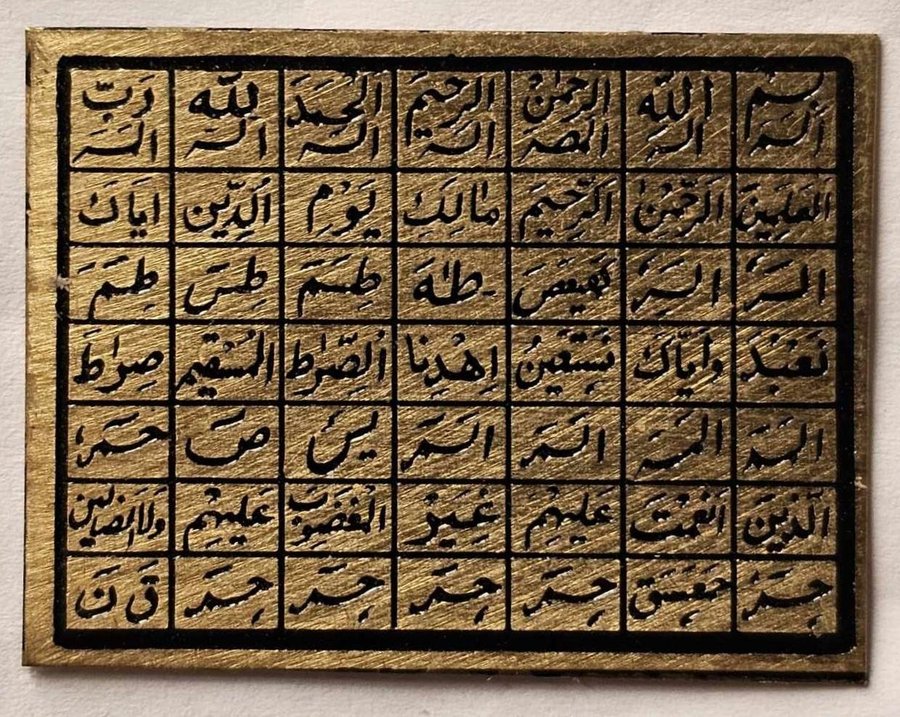 بسم الله الرحمٰن الرحيم الحمد لله رب
الم الم المص الر الر الر المر
العلمين الرحمٰن الرحيم مٰالك يوم الدين اياك
الر الر كهيعص طٰه طسم طس طسم
نعبد واياك نستعين اهدنا الصرٰاط المستقيم صرٰاط
الم الم الم الم يس ص حم
الذين انعمت عليهم غير المغضوب عليهم ولا الضالين
حم حمعسق حم حم حم حم ق ن